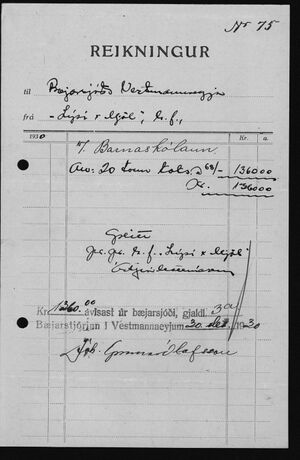 Nr 75
REIKNINGUR
til Bæjarsjóðs Vestmannaeyja
frá „Lýsi & Mjöl", h.f.,
1930 Kr. a.
F. Barnaskólann
20 tonn Kols à 68/- 1360 00
Kr. 1360 00
Greitt
pr. pr. h.f. „Lýsi & Mjöl"
Kr. 1360.00 ávísast úr bæjarsjóði, gjaldl. 3a
Bæjarstjórinn í Vestmannaeyjum 30. des. 1930
Jóh. Gunnar Ólafsson